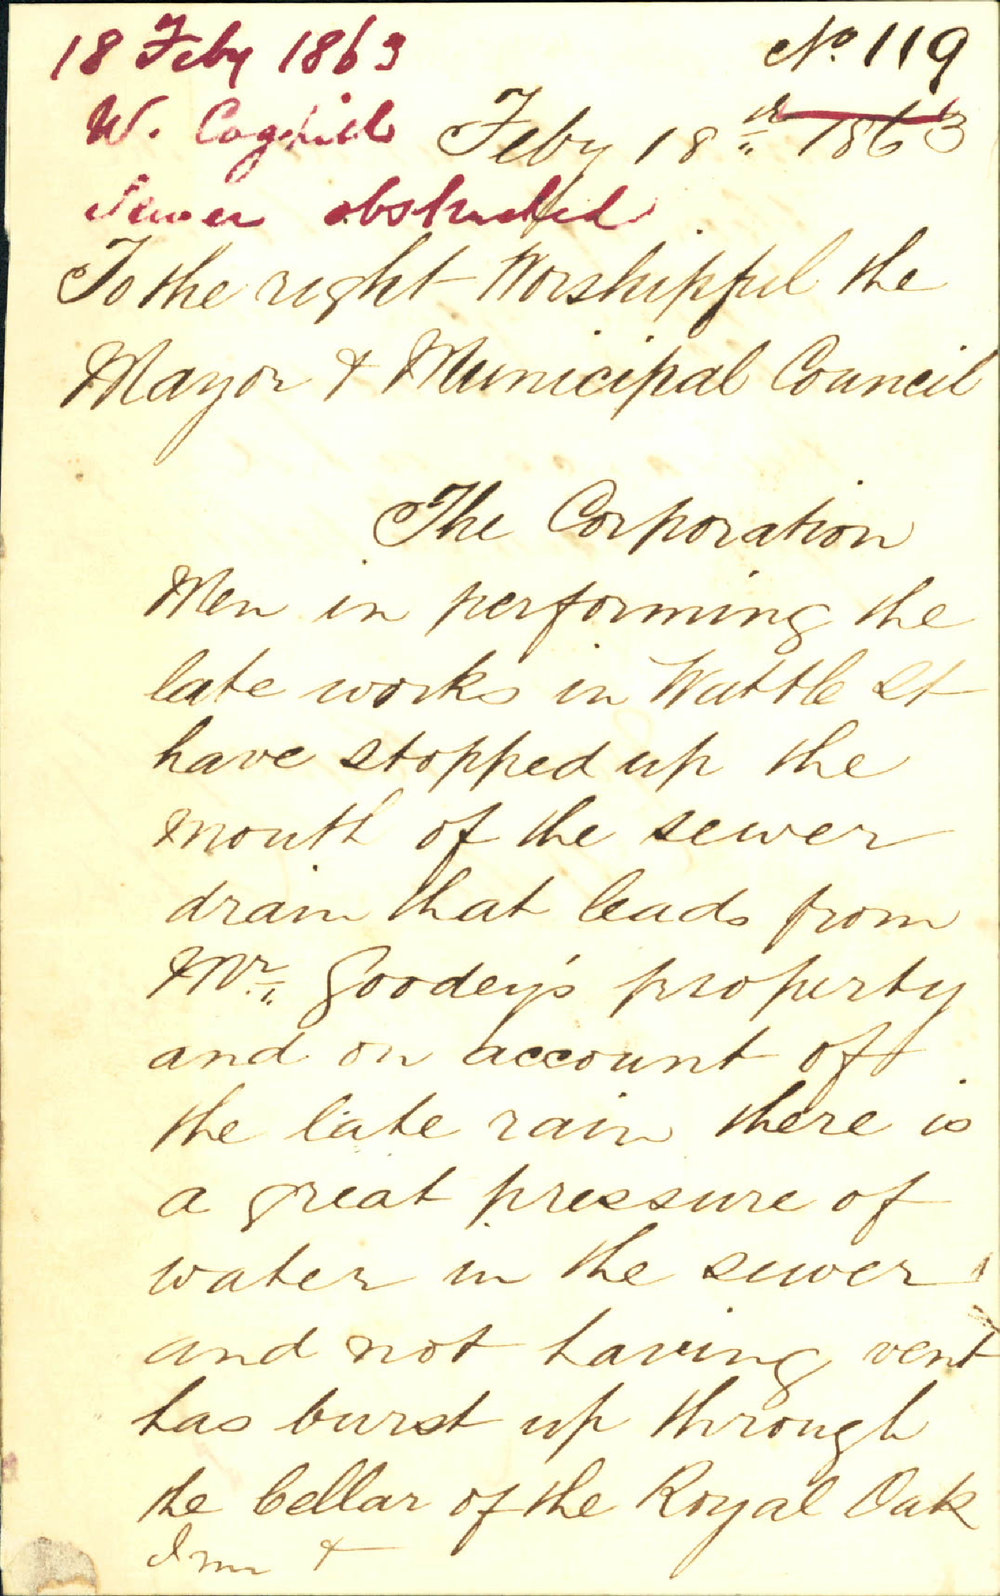 18 Feby 1863
No. 119
W. Coghill
Feby 18th 1863
Sewer obstructed
To the right Worshipful the
Mayor & Municipal Council
The Corporation
Men in performing the
late works in Wattle St
have stopped up the
mouth of the sewer
drain that leads from
Mr. Goodey's property
and on account of
the late rain there is
a great pressure of
water in the sewer
and not having vent
has burst up through
the Cellar of the Royal Oak
Inn &